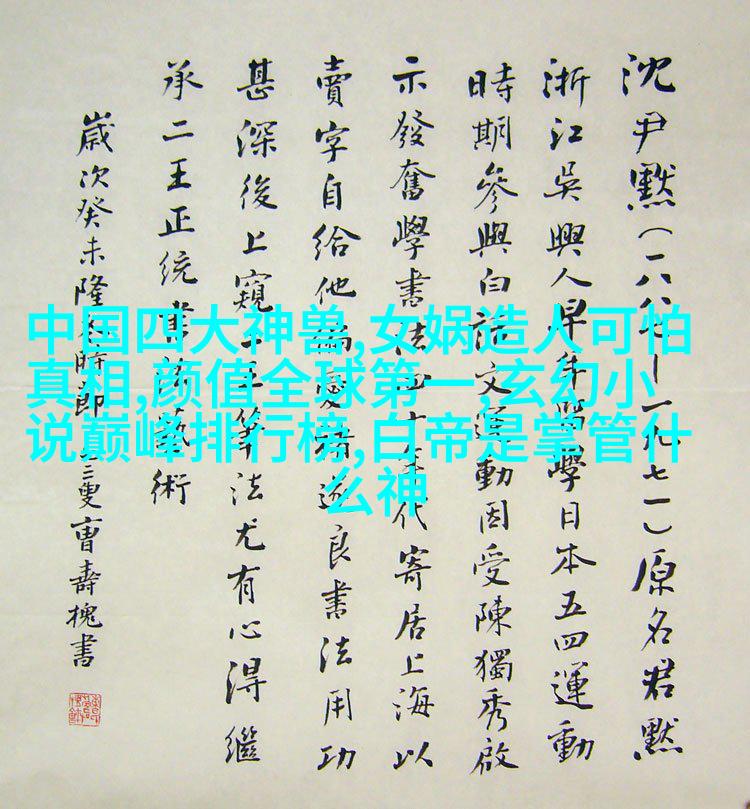 中国四大神兽,女娲造人可怕
真相,颜值全球第一,玄幻小
说巅峰排行榜,白帝是掌管什
么神
沈尹默(一八八七—一九七一)原名君默
浙江吳興人早年留學日本五四運動
時期參與白話文運動因受陳獨秀啟
示發奮學書法十年代寄居上海以
賣字自給他偏愛褚遂良書法用功
甚深後上窺二王筆法尤有心得繼
承二王正統書法藝術
歲次癸未隆冬時節曹壽槐書